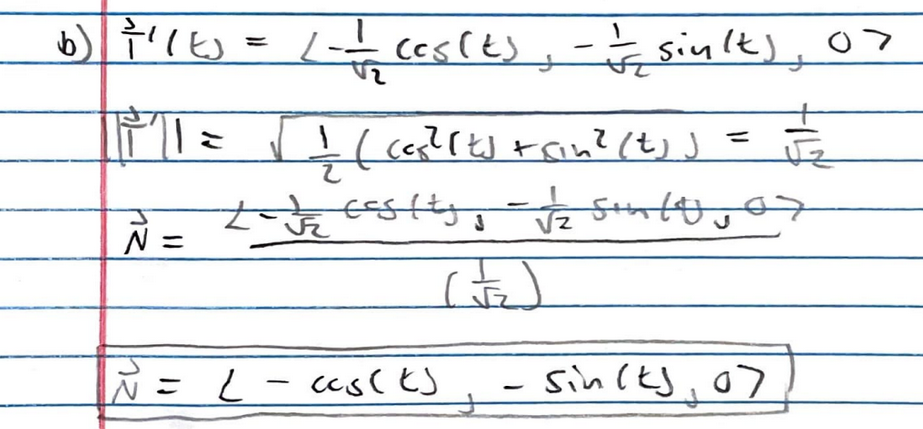 b) T⃗'(t) = <-1/√2 cos(t), -1/√2 sin(t), 0>
|T⃗'| = √(1/2 (cos²(t) + sin²(t))) = 1/√2
N⃗ = <-1/√2 cos(t), -1/√2 sin(t), 0> / (1/√2)
N⃗ = <-cos(t), -sin(t), 0>